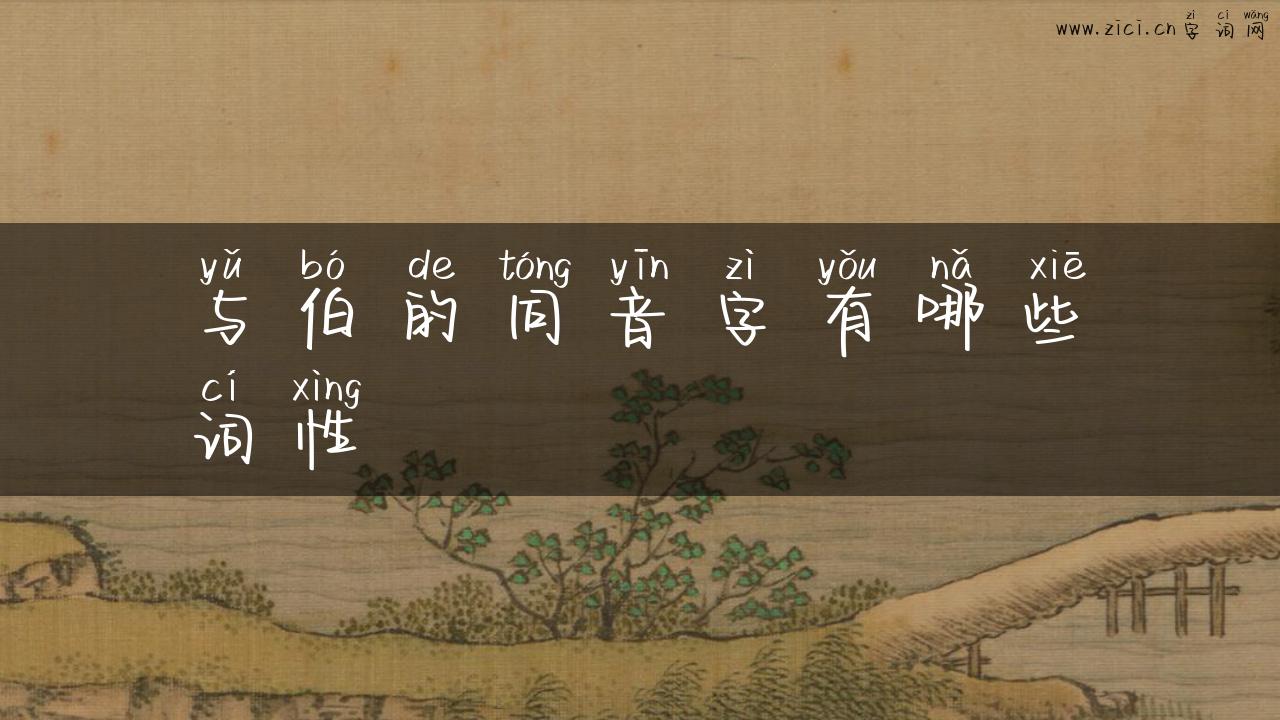 zì cí wǎng
www.zici.cn 字词网
yǔ bó de tóng yīn zì yǒu nǎ xiē
与伯的同音字有哪些
cí xìng
词性